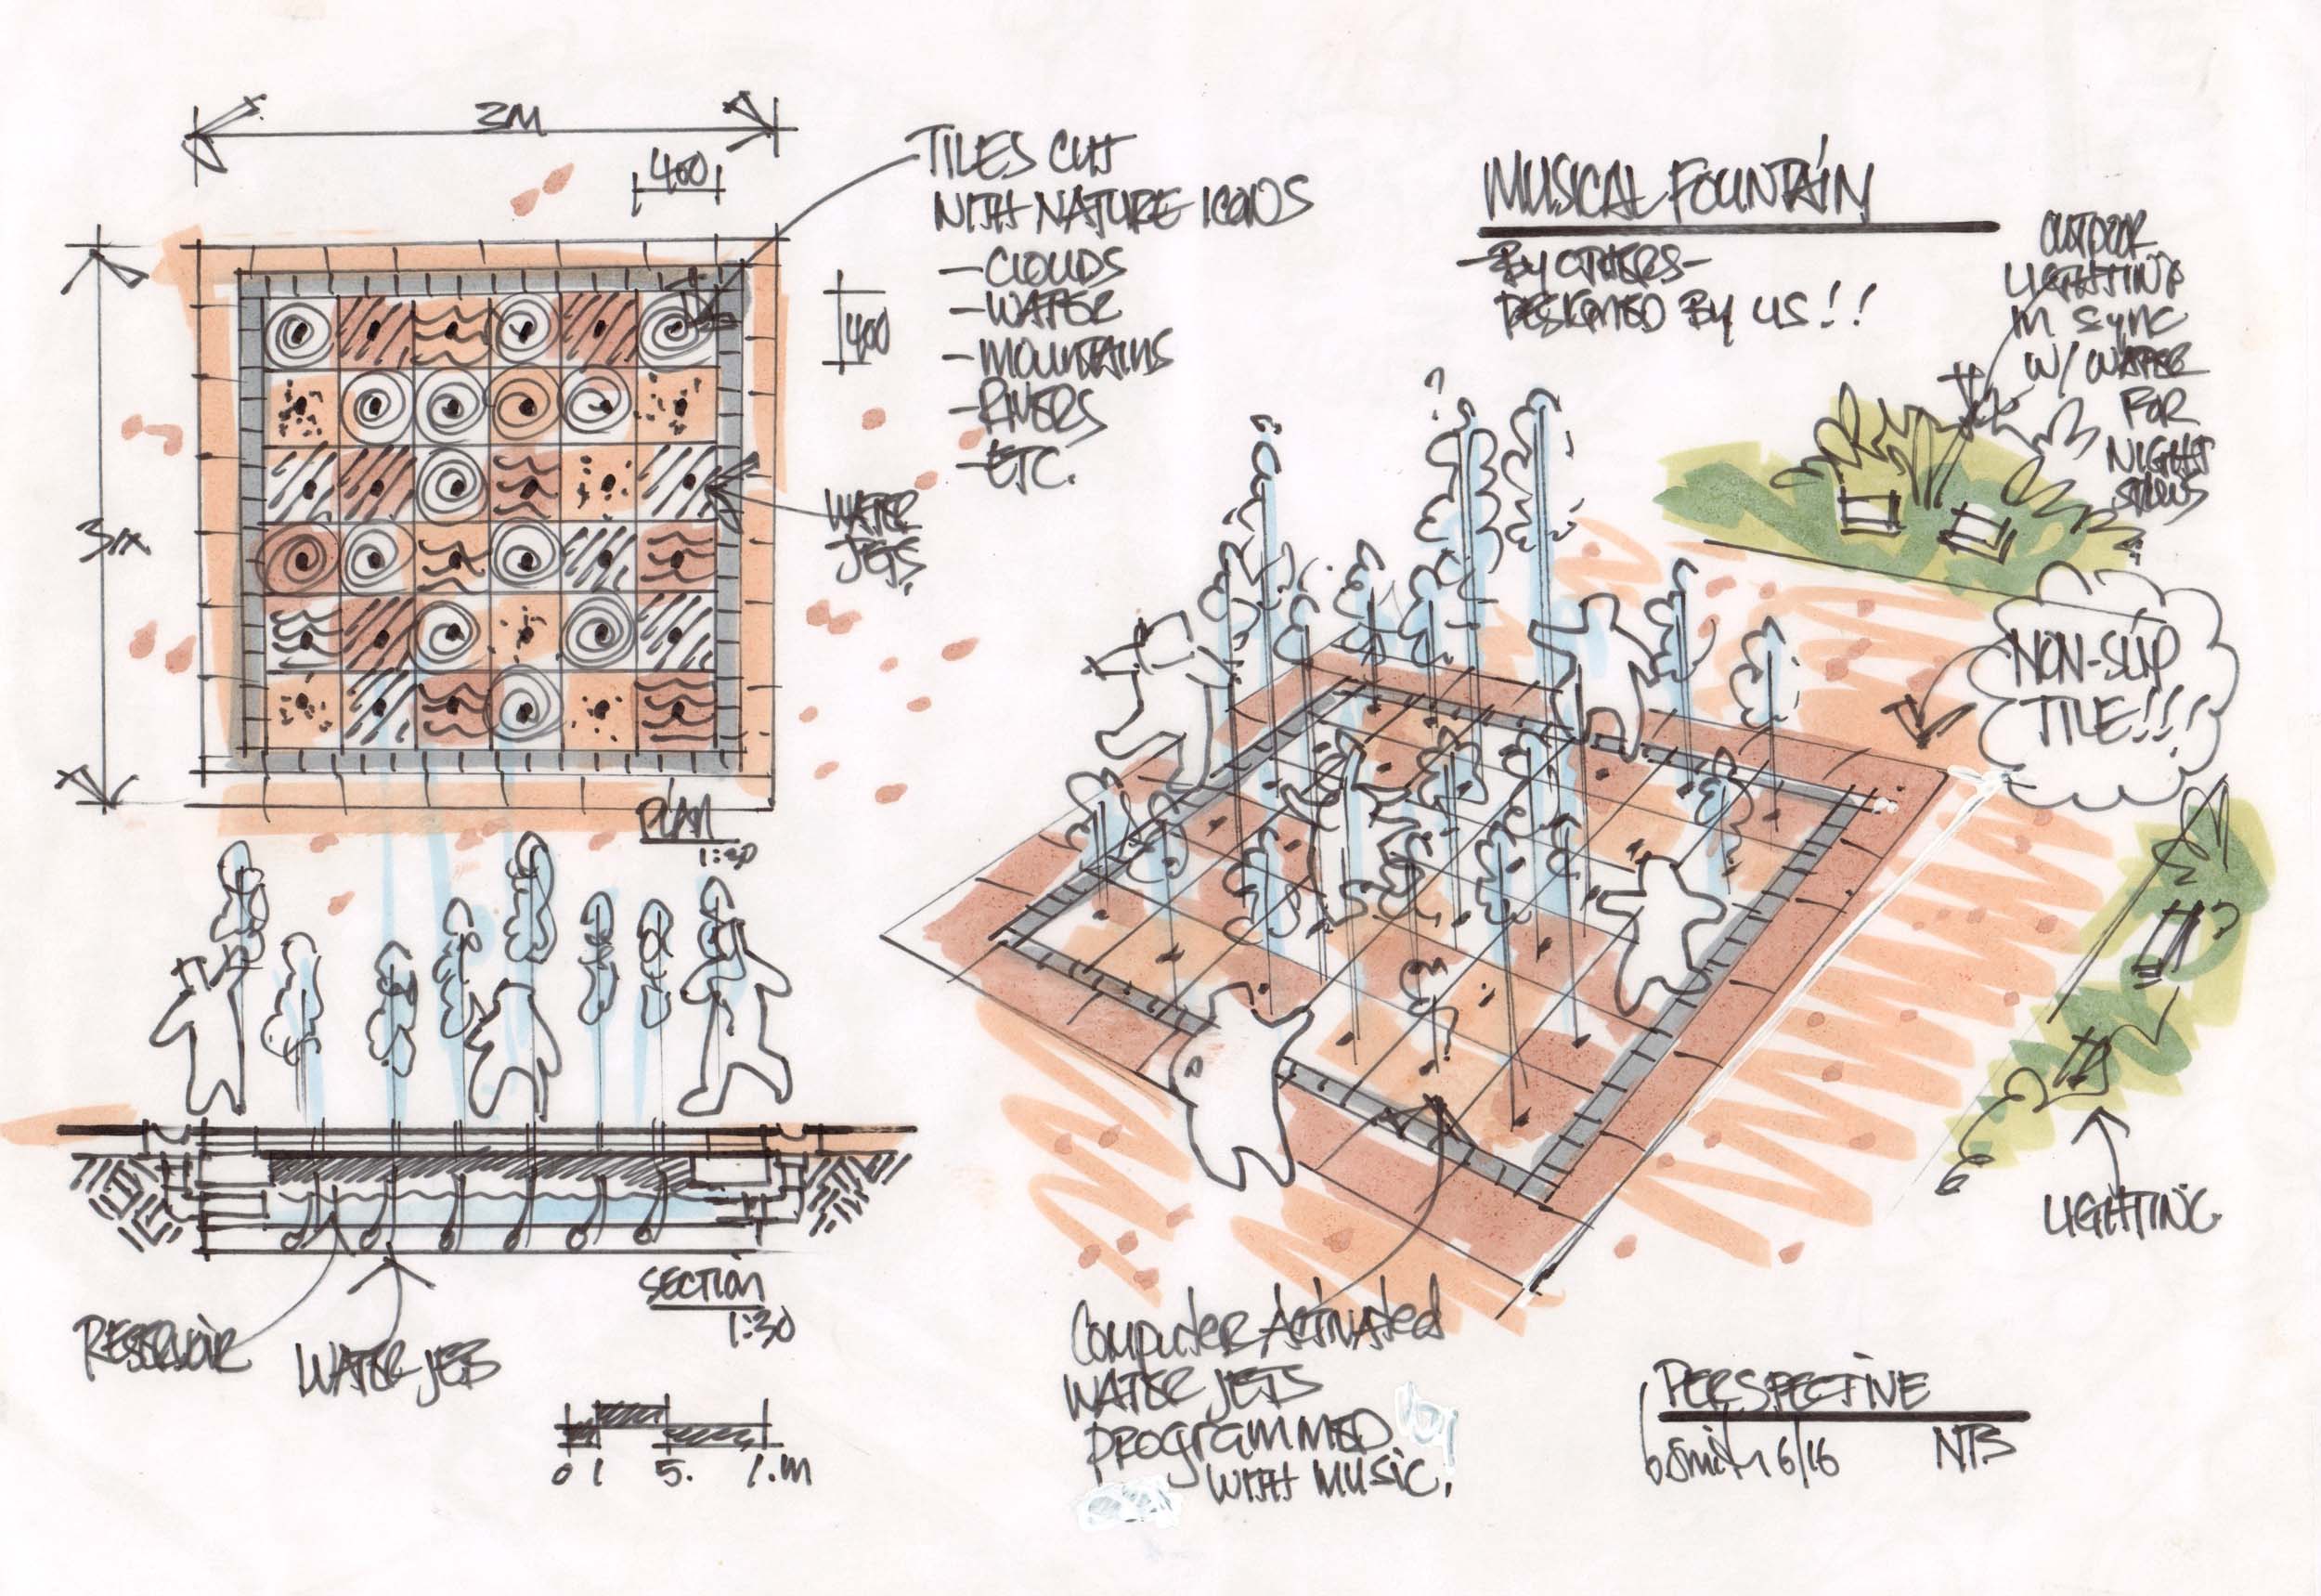 3M
400
TILES CUT
WITH NATURE ICONS
-CLOUDS
-WATER
-MOUNTAINS
-RIVERS
-ETC.
400
3M
WATER
JETS
PLAN
MUSICAL FOUNTAIN
-BY OTHERS-
DESIGNED BY US!!
OUTDOOR
LIGHTING
IN SYNC
W/ WATER
FOR
NIGHT
SHOWS
NON-SLIP
TILE!!!
LIGHTING
SECTION
1:30
RESERVOIR
WATER JETS
0 1 5. 1.M
COMPUTER ACTIVATED
WATER JETS
PROGRAMMED
WITH MUSIC.
PERSPECTIVE
b.smith 6/16 NTS